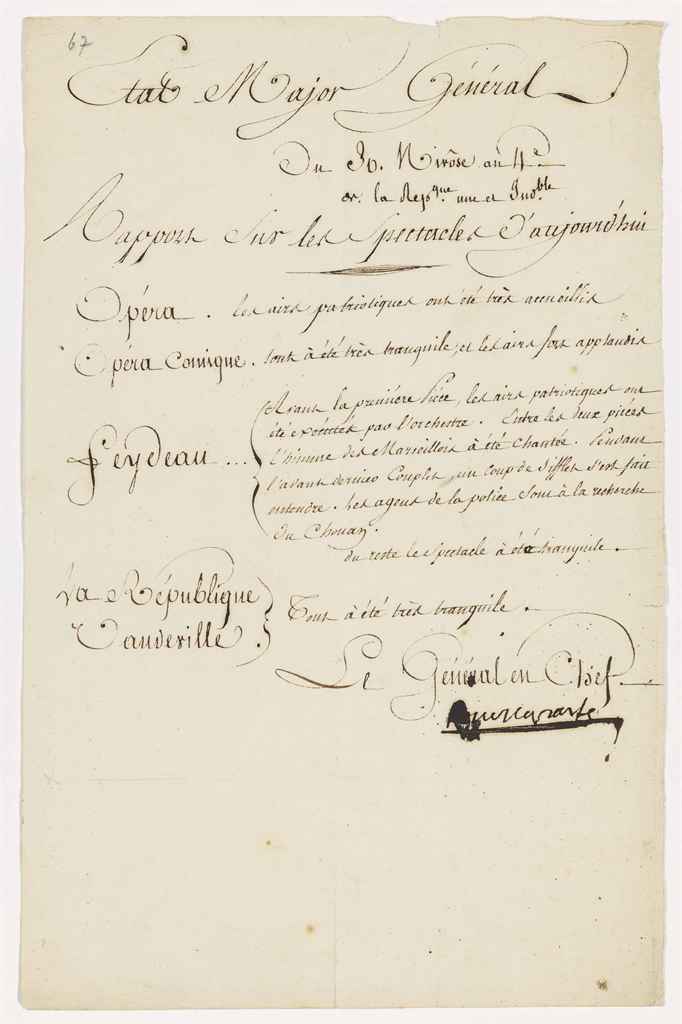 67
Etat Major Général
Du 30. Nivôse an 4e
de la Repque une et Indble
Rapport Sur les Spectacles D'aujourd'hui
Opéra . les airs patriotiques ont été très accueillis
Opéra Comique . tout à été très tranquile, et les airs fort applaudis
Feydeau ... Avant la première Pièce, les airs patriotiques ont
été exécutés par l'orchestre . Entre les deux pièces
l'himne des Marseillois à été chantée. Pendant
l'avant dernier Couplet, un coup de Sifflet s'est fait
entendre . les agens de la police sont à la recherche
du Chouan.
du reste le Spectacle à été tranquile .
La République
Vaudeville . Tout à été très tranquile .
Le Général en Chef
Buonaparte